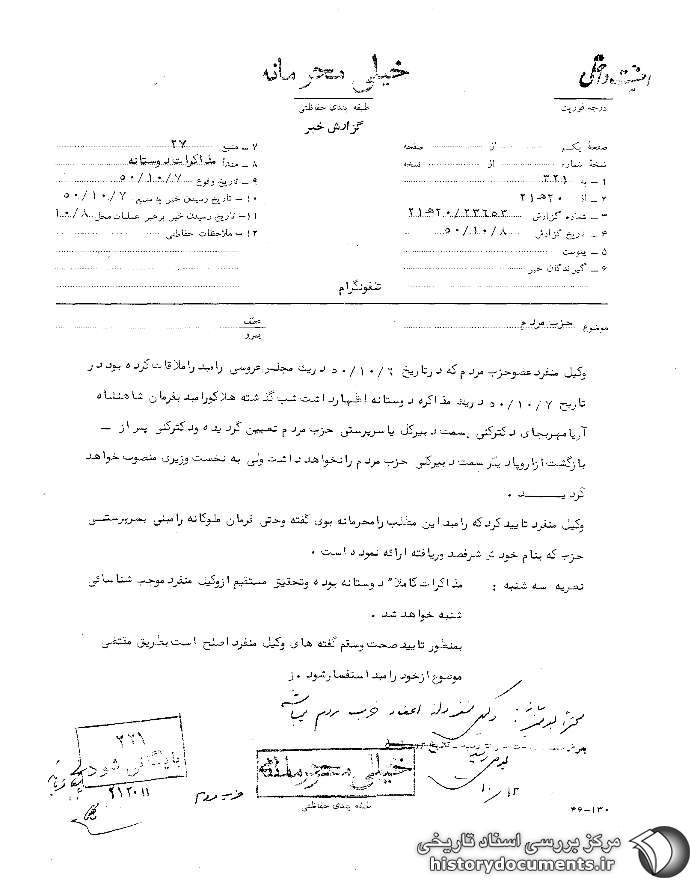 خیلی محرمانه
طبقه بندی حفاظتی
درجه فوریت
گزارش خبر
صفحهٔ یکم از صفحه
نسخهٔ شماره از نسخه
۱ ــ به ۳۲۱
۲ ــ از ۲۰هـ۲۱
۳ ــ شماره گزارش ۲۱هـ۲۰/۲۳۶۵۳
۴ ــ تاریخ گزارش ۵۰/۱۰/۸
۵ ــ پیوست
۶ ــ گیرندگان خبر
۷ ــ منبع ۲۷
۸ ــ منشأ مذاکرات دوستانه
۹ ــ تاریخ وقوع ۵۰/۱۰/۷
۱۰ ــ تاریخ رسیدن خبر به منبع ۵۰/۱۰/۷
۱۱ ــ تاریخ رسیدن خبر برهبر عملیات محل ۱۰/۸
۱۲ ــ ملاحظات حفاظتی
تلفونگرام
موضوع حزب مردم
عطف
پیرو
وکیل منفرد عضو حزب مردم که در تاریخ ۵۰/۱۰/۶ در یک مجلس عروسی رامبد را ملاقات کرده بود در
تاریخ ۵۰/۱۰/۷ در یک مذاکره دوستانه اظهار داشت شب گذشته هلاکو رامبد بفرمان شاهنشاه
آریامهر بجای دکتر کنی بسمت دبیر کل یا سرپرستی حزب مردم تعیین گردیده و دکتر کنی پس از ــ
بازگشت از اروپا دیگر سمت دبیر کلی حزب مردم را نخواهد داشت ولی به نخست وزیری منصوب خواهد
گردیـــــد .
وکیل منفرد تایید کرد که رامبد این مطلب را محرمانه بوی گفته و حتی فرمان ملوکانه را مبنی بسرپرستی
حزب که بنام خودش شرفصدور یافته ارائه نموده است .
نظریه سه شنبه : مذاکرات کاملاً دوستانه بوده و تحقیق مستقیم از وکیل منفرد موجب شناسائی
شنبه خواهد شد .
بمنظور تایید صحت و سقم گفته های وکیل منفرد اصلح است بطریق مقتضی
موضوع از خود رامبد استفسار شود . ز
وکیل منفرد از اعضاء حزب مردم میباشد
۳۲۱
بایگانی شود
۲۱۲۰۱۱
حزب مردم
خیلی محرمانه
طبقه بندی حفاظتی
۱۰/۱۲
۴۶-۱۳۰
مرکز بررسی اسناد تاریخی
historydocuments.ir